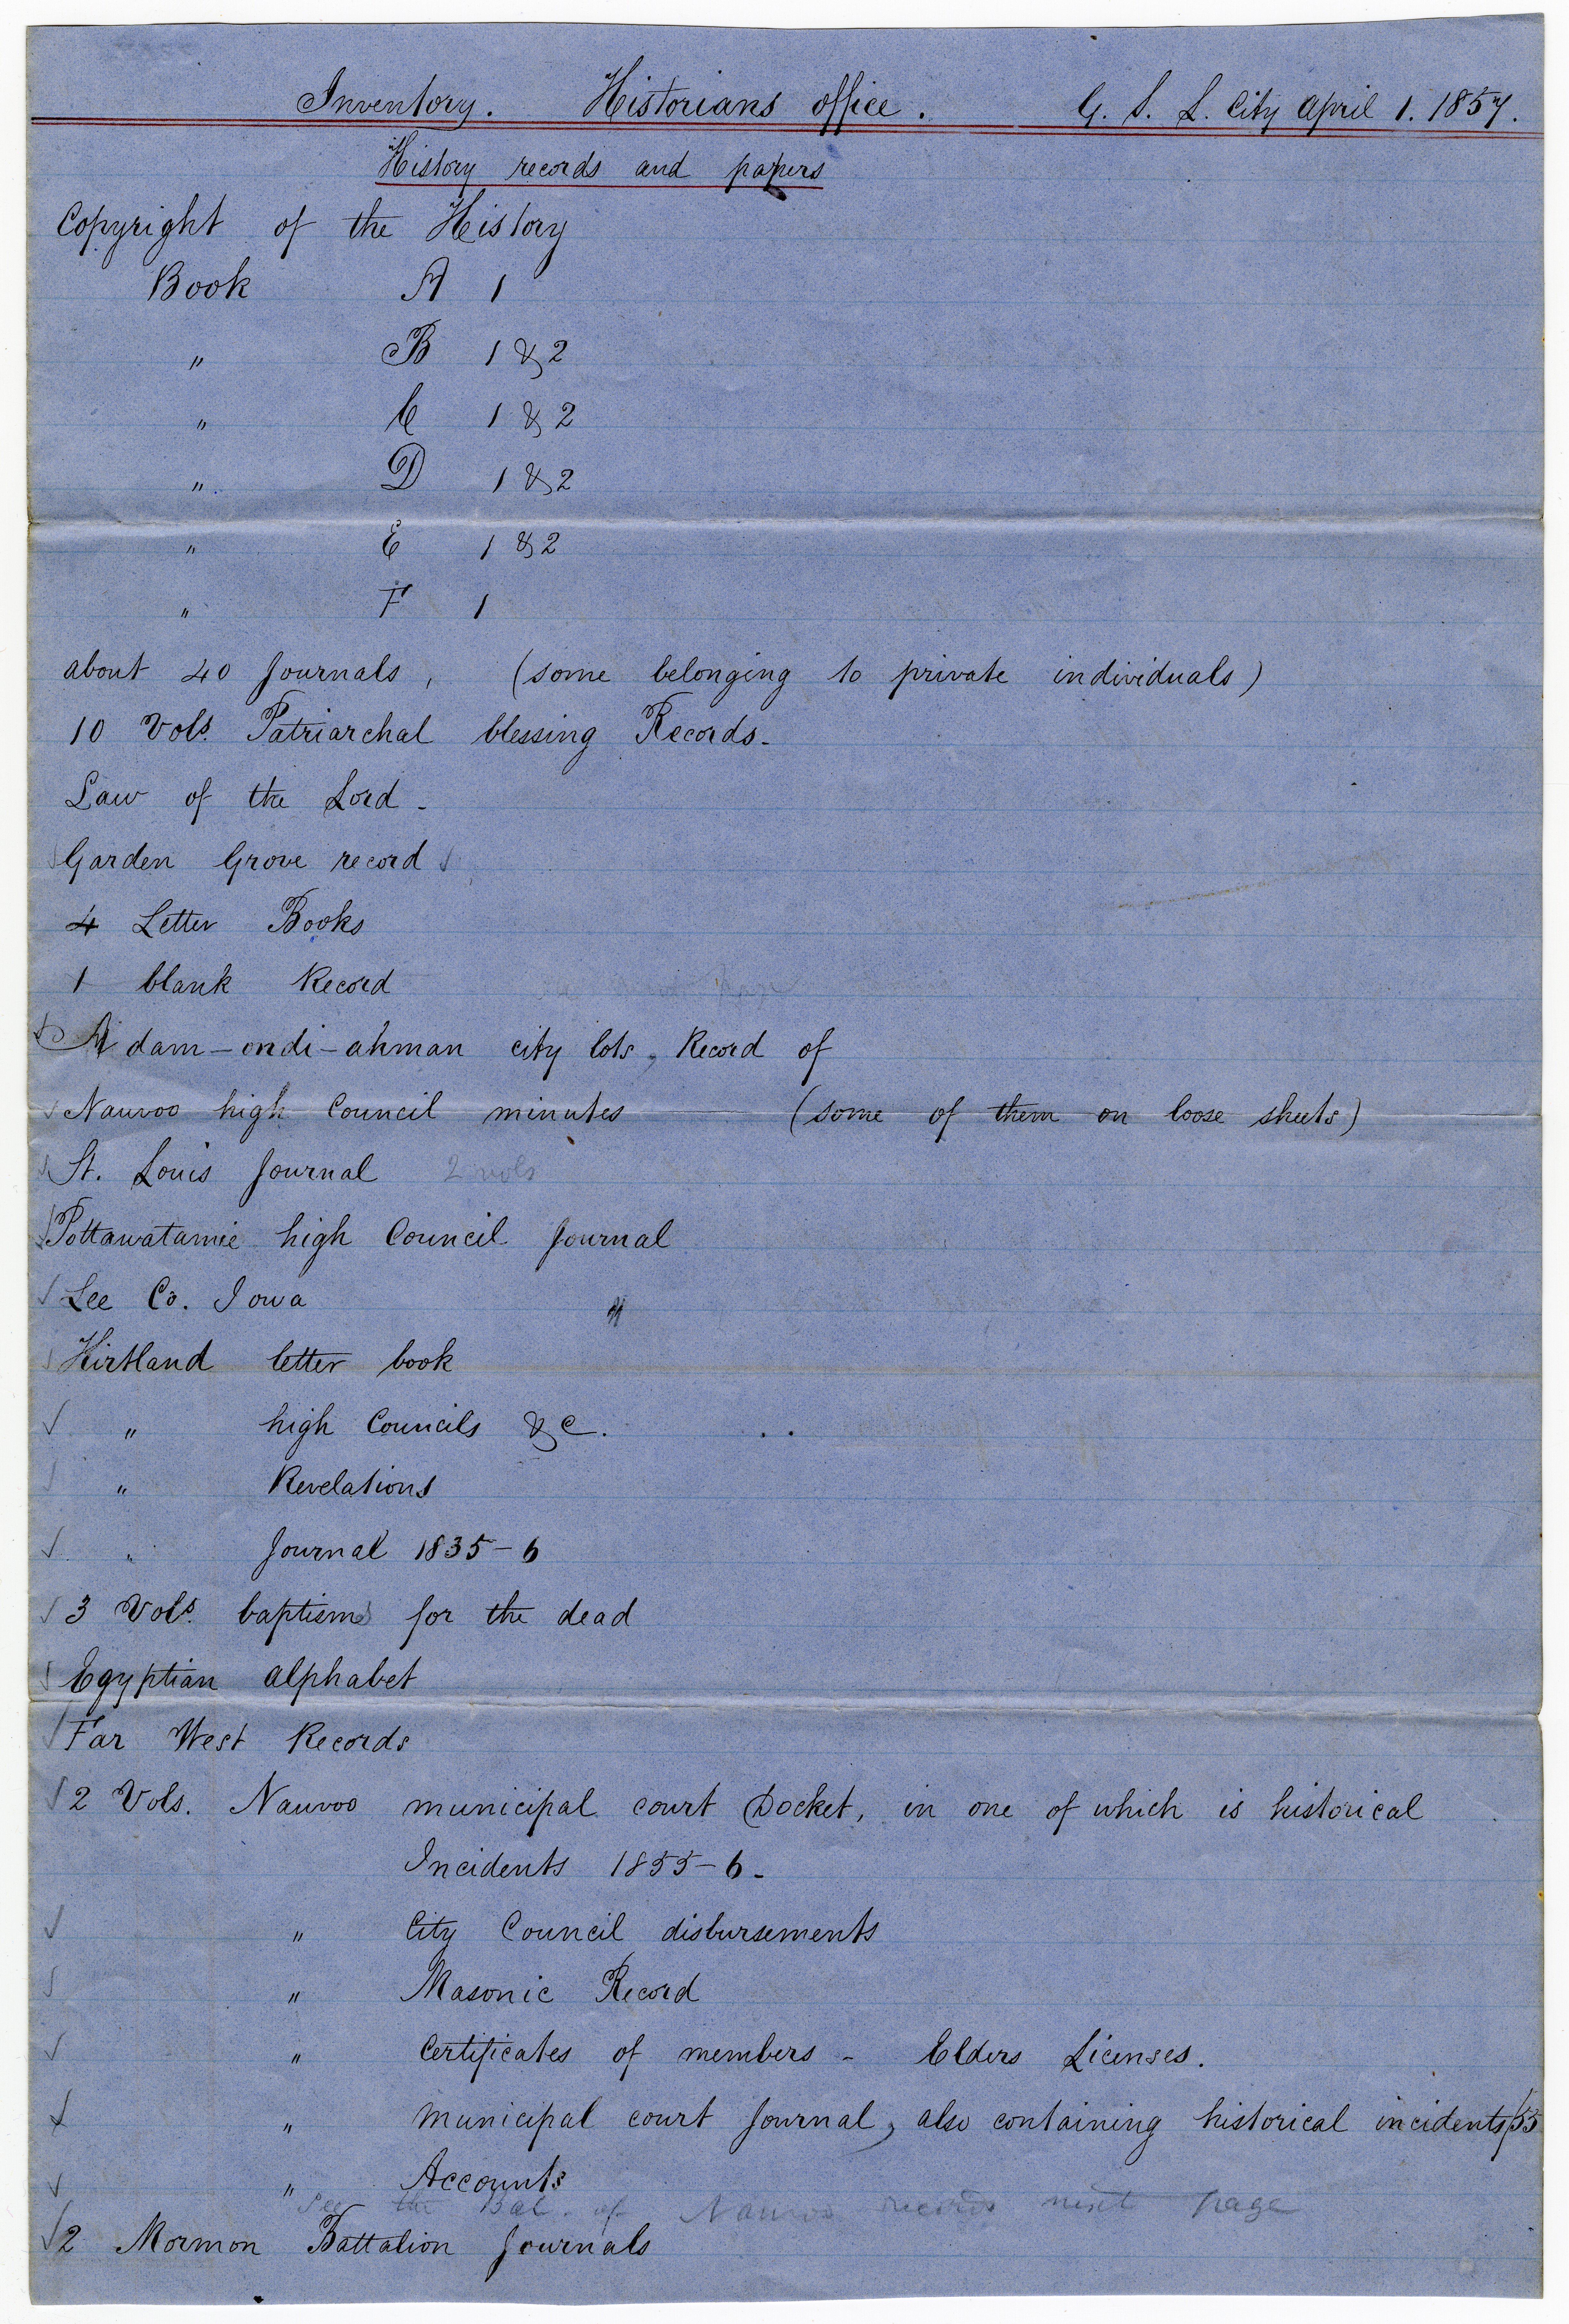 Inventory. Historians office. G. S. L. City April 1. 1857.
History records and papers
Copyright of the History
Book A 1
" B 1 & 2
" C 1 & 2
" D 1 & 2
" E 1 & 2
" F 1
about 40 Journals, (some belonging to private individuals)
10 Vols. Patriarchal blessing Records-
Law of the Lord-
✓ Garden Grove record ✓
4 Letter Books
1 blank Record
Adam-ondi-ahman city lots, Record of
✓ Nauvoo high Council minutes (some of them on loose sheets)
✓ St. Louis Journal 2 vols
✓ Pottawatamie high Council Journal
✓ Lee Co. Iowa "
✓ Kirtland letter book
✓ " high Councils &c.
✓ " Revelations
✓ " Journal 1835-6
✓ 3 Vols. baptisms for the dead
✓ Egyptian alphabet
✓ Far West Records
✓ 2 Vols. Nauvoo municipal court Docket, in one of which is historical
Incidents 1855-6-
✓ " City Council disbursements
✓ " Masonic Record
✓ " Certificates of members - Elders Licenses.
✓ " municipal court Journal, also containing historical incidents/55
✓ " Accounts
See the Bal. of Nauvoo records next page
✓ 2 Mormon Battalion Journals